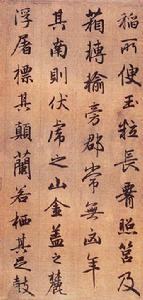 稻所便玉粒長腰照筥及
箱轉輸旁郡常無凶年
其南則伏虎之山金蓋之麓
浮屠標其顛蘭若栖其足鼓